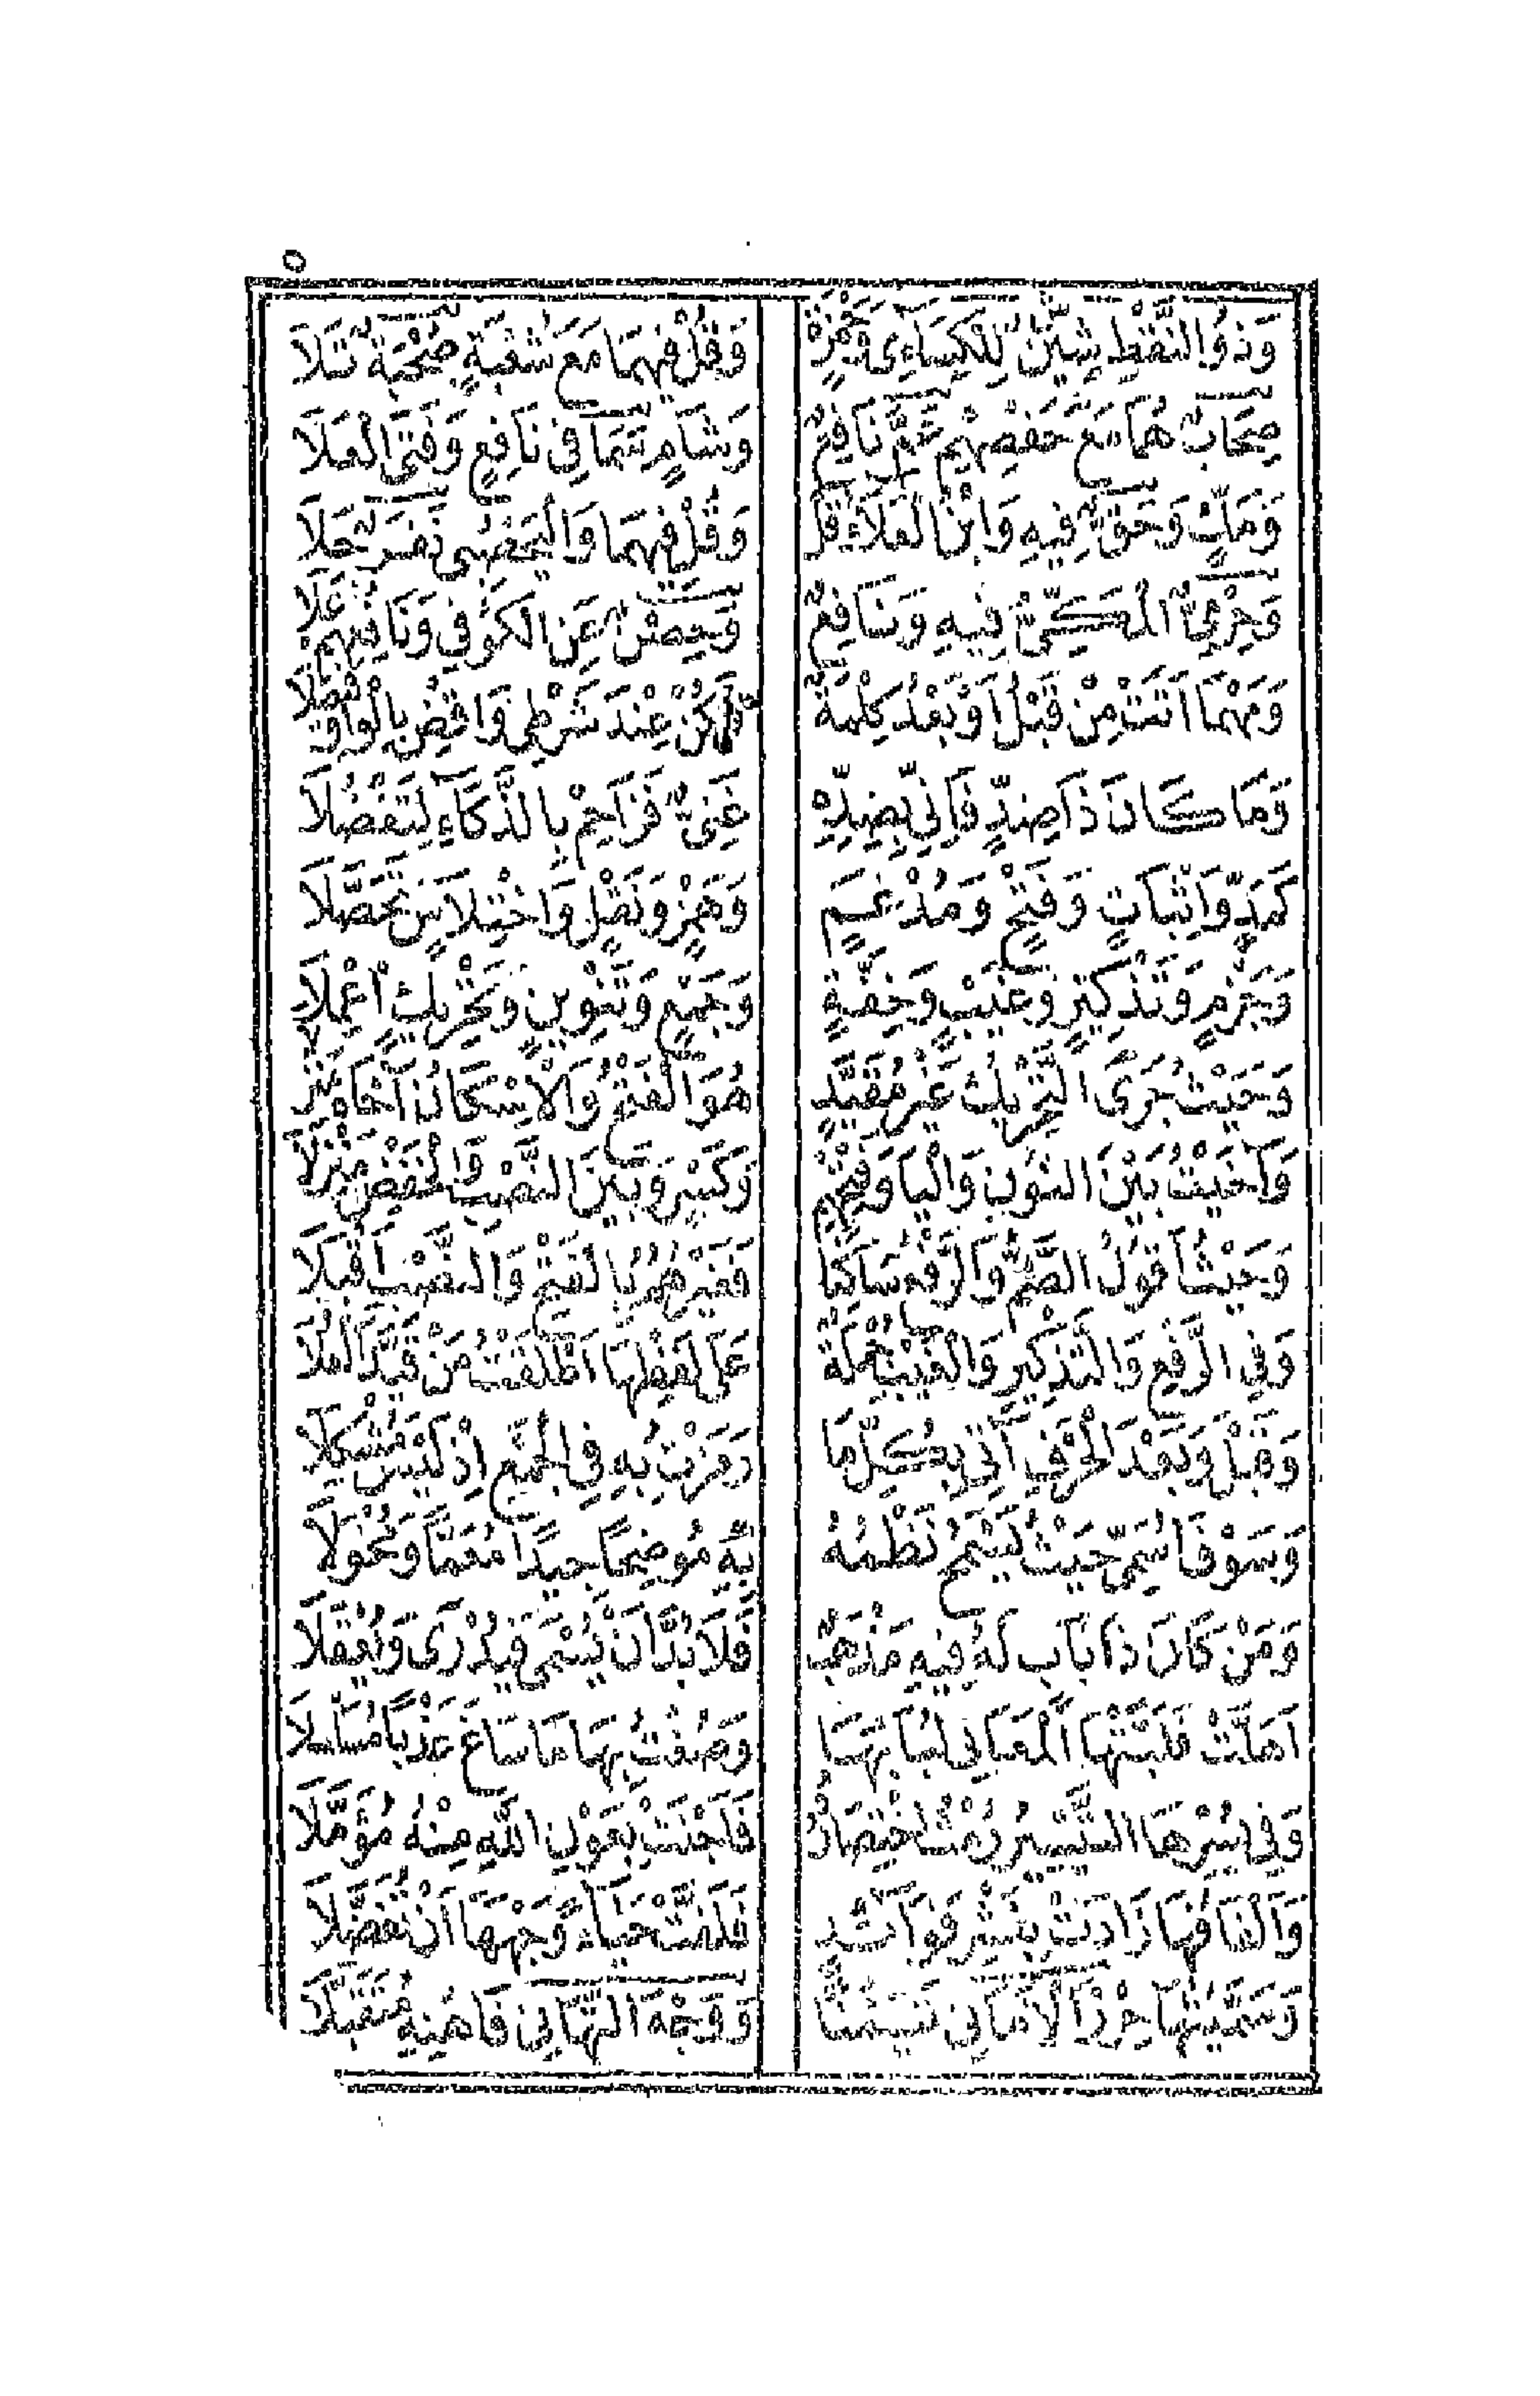 ٥
وَذُو النَّقْطِ شِينٌ لِلْكِسَاءِى وَحَمْزَةٍ وَقُلْ فِيهِمَا مَعَ شُعْبَةٍ صُحْبَةٌ تَلَا
صِحَابٌ هُمَا مَعَ حَفْصِهِمْ عَمَّ نَافِعٌ وَشَامٍ سَمَا فِي نَافِعٍ وَفَتَى الْعَلَا
وَمَكٍّ وَحَقٌّ فِيهِ وَابْنُ الْعَلَاءِ قُلْ وَقُلْ فِيهِمَا وَالْيَحْصُبِى نَفَرٌ حَلَا
وَحِرْمِىٌّ الْمَكِّىُّ فِيهِ وَنَافِعٌ وَحِصْنٌ عَنِ الْكُوفِي وَنَافِعِهِمْ عَلَا
وَمَهْمَا اَتَتْ مِنْ قَبْلُ اَوْ بَعْدُ كِلْمَةٌ فَكُنْ عِنْدَ شَرْطِي وَاقْضِ بِالْوَاوِ فَيْصَلَا
وَمَا كَانَ ذَا ضِدٍّ فَاِنِّي بِضِدِّهِ غَنِىٌّ فَزَاحِمْ بِالذَّكَاءِ لِتَفْضُلَا
كَمَدٍّ وَاِثْبَاتٍ وَفَتْحٍ وَمُدْغَمٍ وَهَمْزٍ وَنَقْلٍ وَاخْتِلَاسٍ تَحَصَّلَا
وَجَزْمٍ وَتَذْكِيرٍ وَغَيْبٍ وَخِفَّةٍ وَجَمْعٍ وَتَنْوِينٍ وَتَحْرِيكٍ اُعْمِلَا
وَحَيْثُ جَرَى التَّحْرِيكُ غَيْرَ مُقَيَّدٍ هُوَ الْفَتْحُ وَالْاِسْكَانُ آخَاهُ مَنْزِلَا
وَآخَيْتُ بَيْنَ النُّونِ وَالْيَا وَفَتْحِهِمْ وَكَسْرٍ وَبَيْنَ النَّصْبِ وَالْخَفْضِ مُنْزِلَا
وَحَيْثُ اَقُولُ الضَّمُّ وَالرَّفْعُ سَاكِتًا فَغَيْرُهُمُ بِالْفَتْحِ وَالنَّصْبِ اَقْبَلَا
وَفِي الرَّفْعِ وَالتَّذْكِيرِ وَالْغَيْبِ جُمْلَةٌ عَلَى لَفْظِهَا اَطْلَقْتُ مَنْ قَيَّدَ الْعُلَا
وَقَبْلَ وَبَعْدَ الْحَرْفِ آتِي بِكُلِّ مَا رَمَزْتُ بِهِ فِي الْجَمْعِ اِذْ لَيْسَ مُشْكِلَا
وَسَوْفَ اُسَمِّي حَيْثُ يَسْمَحُ نَظْمُهُ بِهِ مُوضِحًا جِيدًا مُعَمًّا وَمُخْوَلَا
وَمَنْ كَانَ ذَا بَابٍ لَهُ فِيهِ مَذْهَبٌ فَلَا بُدَّ اَنْ يُسْمَى فَيُدْرَى وَيُعْقَلَا
اَهَلَّتْ فَلَبَّتْهَا الْمَعَانِي لُبَابُهَا وَصُغْتُ بِهَا مَا سَاغَ عَذْبًا مُسَلْسَلَا
وَفِي يُسْرِهَا التَّيْسِيرُ رُمْتُ اخْتِصَارَهُ فَاَجْنَتْ بِعَوْنِ اللهِ مِنْهُ مُؤَمَّلَا
وَاَلْفَافُهَا زَادَتْ بِنَشْرِ فَوَائِدٍ فَلَفَّتْ حَيَاءً وَجْهَهَا اَنْ تُفَضَّلَا
وَسَمَّيْتُهَا حِرْزَ الْاَمَانِي تَيَمُّنًا وَوَجْهَ التَّهَانِي فَاهْنِهِ مُتَقَبِّلَا